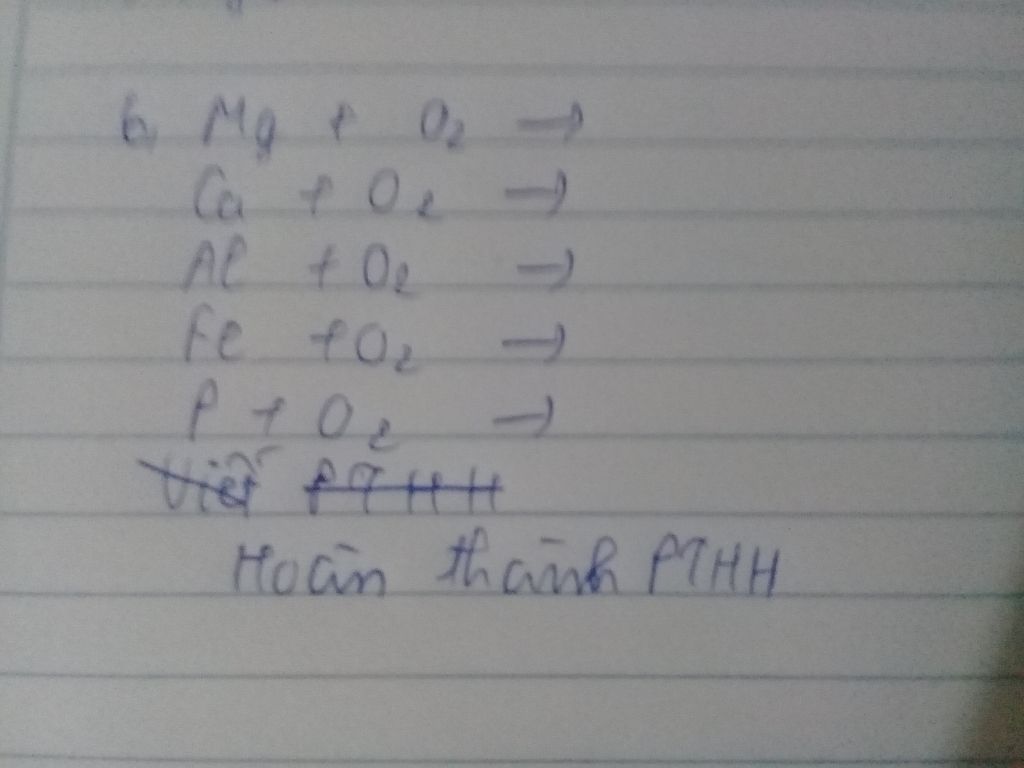 b, Mg + O2 →
Ca + O2 →
Al + O2 →
Fe + O2 →
P + O2 →
Viết PTHH
Hoàn thành PTHH